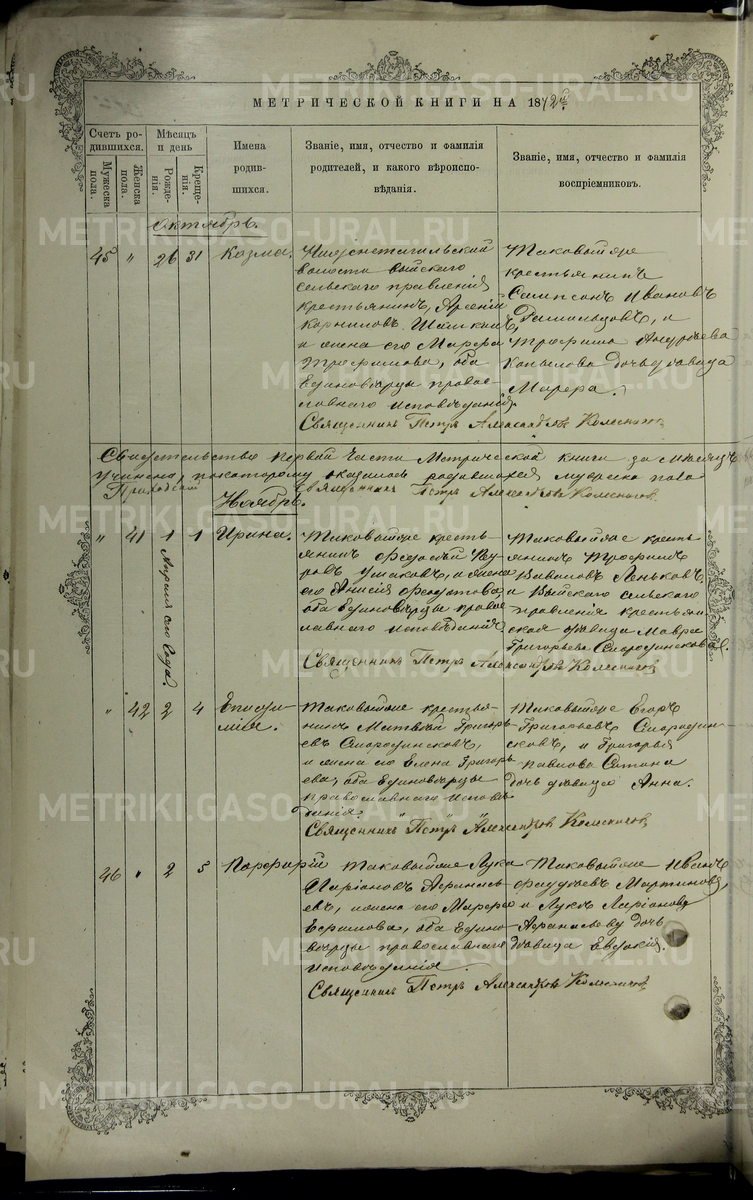 МЕТРИЧЕСКОЙ КНИГИ НА 1872й.
Счетъ ро-
дившихся.
Мужеска
пола.
Женска
пола.
Мѣсяцъ
и день
Рожде-
нія.
Креще-
нія.
Имена
родив-
шихся.
Званіе, имя, отчество и фамилія
родителей, и какого вѣроиспо-
вѣданія.
Званіе, имя, отчество и фамилія
воспріемниковъ.
Октябрь.
45 " 26 31 Козма.
Нижнетагильской
волости Выйскаго
сельскаго правленія
крестьянинъ, Арсеній
Корниловъ
и жена его Марфа
Трофимова, оба
Единовѣрцы право-
славнаго исповѣданія.
Священникъ Петръ Александровъ Колесниковъ
Таковыйже
крестьянинъ
Сампсонъ Ивановъ
и
Трофима
Копылова дочь дѣвица
Марфа.
Свидѣтельство первой части Метрической книги за мѣсяцъ
Учинено, по которому оказалось родившихся мужеска пола
Приходскій Священникъ Петръ Александровъ Колесниковъ
Ноябрь.
" 41 1 1 Ирина.
Апреля сего года.
Таковыйже кресть-
янинъ
Ушаковъ, и жена
его Анисія Феодотова,
оба Единовѣрцы право-
славнаго исповѣданія
Священникъ Петръ Александровъ Колесниковъ
Таковыйже кресть-
янинъ Трофимъ
Вавиловъ
и Выйскаго сельскаго
правленія крестьян-
ская дѣвица Мавра
Григорьева Смородинскова.
" 42 2 4
Таковыйже крестья-
нинъ Матвѣй Григорь-
евъ Смородинсковъ,
и жена его Елена Григорь-
ева, оба Единовѣрцы
православнаго исповѣ-
данія.
Священникъ Петръ Александровъ Колесниковъ
Таковыйже Егоръ
Григорьевъ Смородин-
сковъ, и Григорья
Павлова
дочь дѣвица Анна.
46 " 2 5 Порфирій
Таковыйже Лука
Ларіоновъ Афанась-
евъ, и жена его Марфа
Ефимова, оба Едино-
вѣрцы православнаго
исповѣданія.
Священникъ Петръ Александровъ Колесниковъ
Таковыйже Иванъ
Фаддѣевъ Мартиновъ,
и Луки Ларіонова
Афанасьева дочь
дѣвица Евдокія.
METRIKI.GASO-URAL.RU